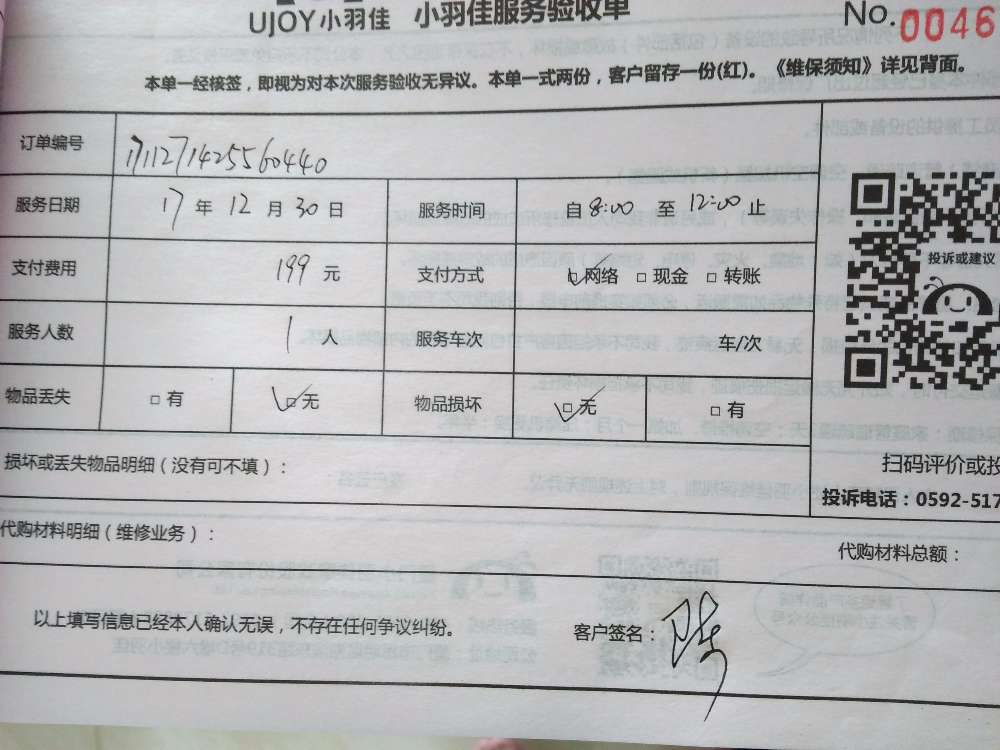 UJOY小羽佳 小羽佳服务验收单 No.0046
本单一经核签，即视为对本次服务验收无异议。本单一式两份，客户留存一份(红)。《维保须知》详见背面。
订单编号 1711271425560440
服务日期 17 年 12 月 30 日 服务时间 自 8:00 至 12:00 止
支付费用 199 元 支付方式 网络 □ 现金 □ 转账
投诉或建议
服务人数 1 人 服务车次 车/次
物品丢失 □ 有 □ 无 物品损坏 □ 无 □ 有
损坏或丢失物品明细（没有可不填）： 扫码评价或投
投诉电话：0592-517
代购材料明细（维修业务）： 代购材料总额：
以上填写信息已经本人确认无误，不存在任何争议纠纷。 客户签名：